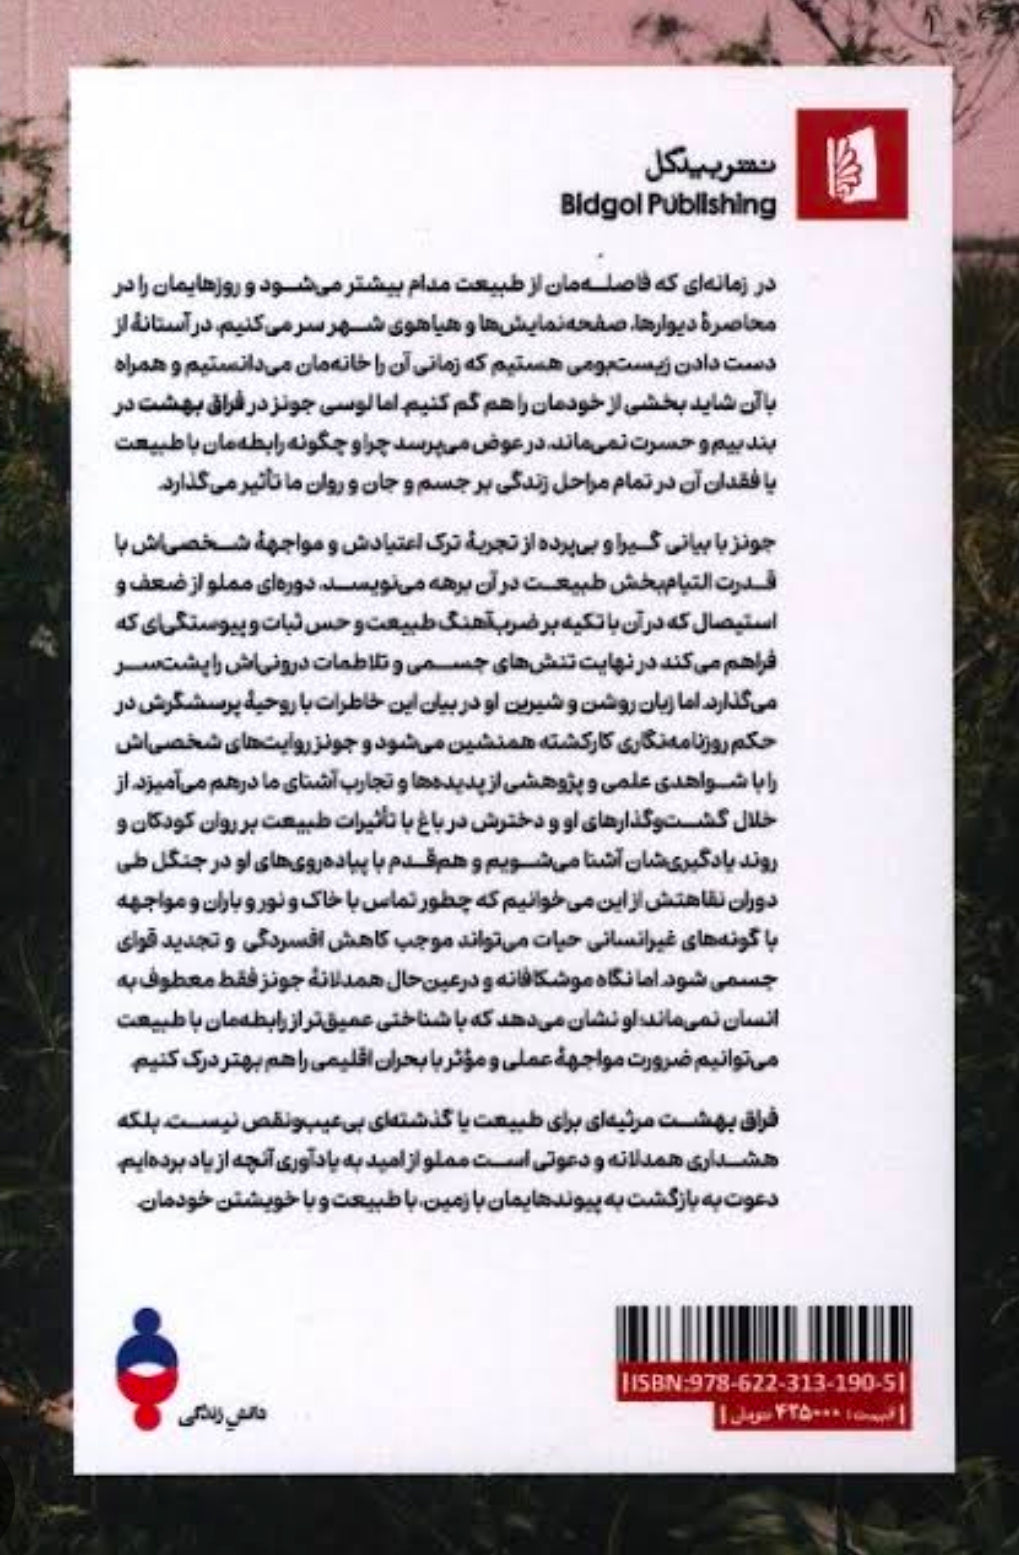 نشر بیدگل
Bidgol Publishing
در زمانه‌ای که فاصله‌مان از طبیعت مدام بیشتر می‌شود و روزهایمان را در
محاصرهٔ دیوارها، صفحه‌نمایش‌ها و هیاهوی شهر سر می‌کنیم، در آستانهٔ از
دست دادن زیست‌بومی هستیم که زمانی آن را خانه‌مان می‌دانستیم و همراه
با آن شاید بخشی از خودمان را هم گم کنیم. اما لوسی جونز در فراق بهشت در
بند بیم و حسرت نمی‌ماند، در عوض می‌پرسد چرا و چگونه رابطه‌مان با طبیعت
یا فقدان آن در تمام مراحل زندگی بر جسم و جان و روان ما تأثیر می‌گذارد.
جونز با بیانی گیرا و بی‌پرده از تجربهٔ ترک اعتیادش و مواجههٔ شخصی‌اش با
قدرت التیام‌بخش طبیعت در آن برهه می‌نویسد. دوره‌ای مملو از ضعف و
استیصال که در آن با تکیه بر ضرب‌آهنگ طبیعت و حس ثبات و پیوستگی‌ای که
فراهم می‌کند در نهایت تنش‌های جسمی و تلاطمات درونی‌اش را پشت‌سر
می‌گذارد. اما زبان روشن و شیرین او در بیان این خاطرات با روحیهٔ پرسشگرش در
حکم روزنامه‌نگاری کارکشته همنشین می‌شود و جونز روایت‌های شخصی‌اش
را با شواهدی علمی و پژوهشی از پدیده‌ها و تجارب آشنای ما درهم می‌آمیزد. از
خلال گشت‌وگذارهای او و دخترش در باغ با تأثیرات طبیعت بر روان کودکان و
روند یادگیری‌شان آشنا می‌شویم و هم‌قدم با پیاده‌روی‌های او در جنگل طی
دوران نقاهتش از این می‌خوانیم که چطور تماس با خاک و نور و باران و مواجهه
با گونه‌های غیرانسانی حیات می‌تواند موجب کاهش افسردگی و تجدید قوای
جسمی شود. اما نگاه موشکافانه و درعین‌حال همدلانهٔ جونز فقط معطوف به
انسان نمی‌ماند؛ او نشان می‌دهد که با شناختی عمیق‌تر از رابطه‌مان با طبیعت
می‌توانیم ضرورت مواجههٔ عملی و مؤثر با بحران اقلیمی را هم بهتر درک کنیم.
فراق بهشت مرثیه‌ای برای طبیعت یا گذشته‌ای بی‌عیب‌ونقص نیست، بلکه
هشداری همدلانه و دعوتی است مملو از امید به یادآوری آنچه از یاد برده‌ایم،
دعوت به بازگشت به پیوندهایمان با زمین، با طبیعت و با خویشتن خودمان.
دانش زندگی
ISBN:978-622-313-190-5
قیمت: ۴۲۵۰۰۰ تومان